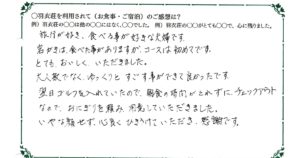 ○羽衣荘を利用されて（お食事・ご宿泊）のご感想は？
例）羽衣荘の○○は他の○○にはなく、○○でした。 例）羽衣荘の、○○がとても○○で、心に残りました。
旅行が好き、食べる事が好きな夫婦です。
岩がきは、食べた事がありますが、コースは初めてです。
とてもおいしく、いただきました。
大人数でなく、ゆっくりとすごす事ができて良かったです。
翌日ゴルフを入れていたので、朝食の時間がとれずに、チェックアウト
なので、おにぎりを頼み用意していただきました。
いやな顔せず、心良くひきうけていただき、感謝です。